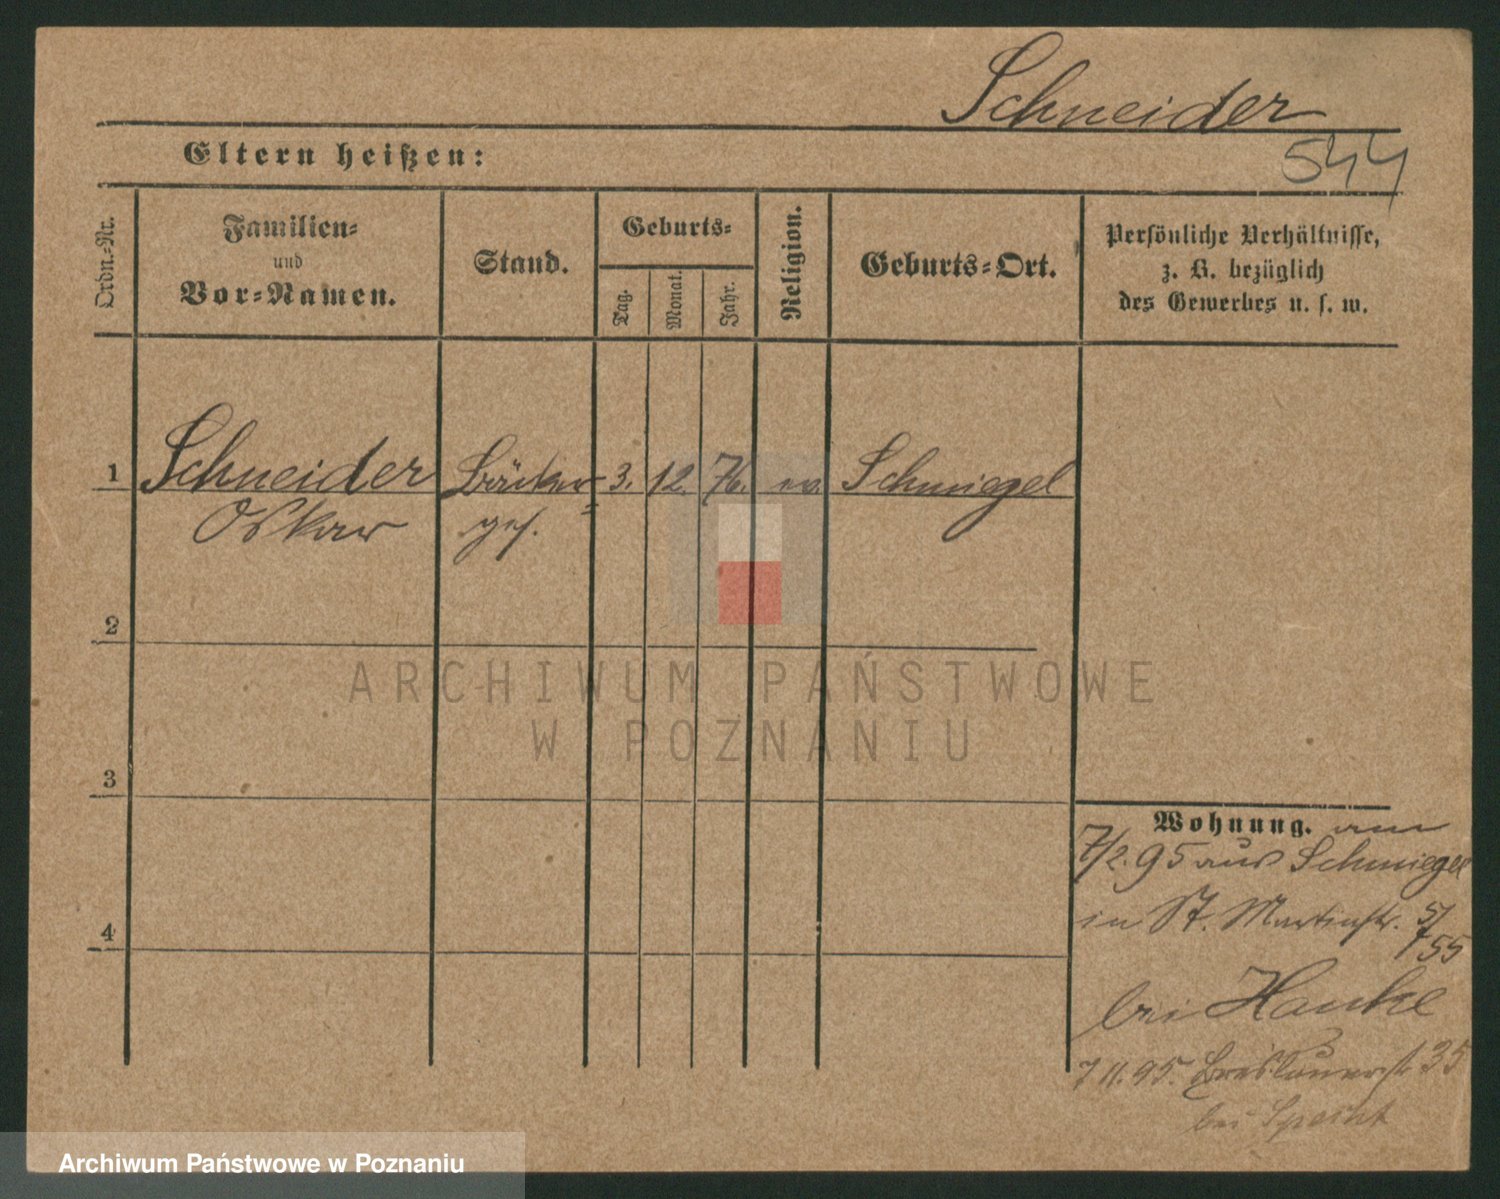 Schneider
544
Eltern heißen:
Ordn.-Nr.
Familien-
und
Vor-Namen.
Stand.
Geburts-
Tag.
Monat.
Jahr.
Religion.
Geburts-Ort.
Persönliche Verhältnisse,
z. B. bezüglich
des Gewerbes u. s. w.
1 Schneider Bäcker- 3. 12. 76. ev. Schmiegel
Oskar ges.
2
3
4
Wohnung. am
7/2. 95 aus Schmiegel
in St. Martinstr. 5/
55
bei Hanke
7 11. 95. Breslauerstr 35
bei
ARCHIWUM PAŃSTWOWE
W POZNANIU
Archiwum Państwowe w Poznaniu